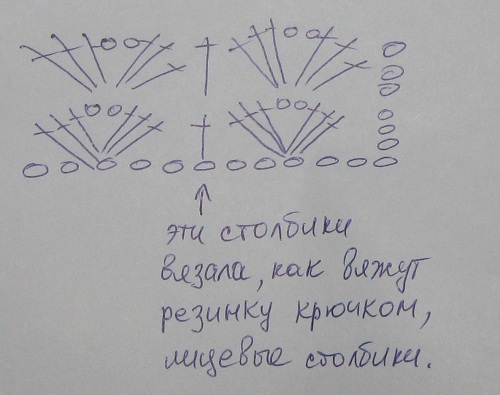 эти столбики
вязала, как вяжут
резинку крючком,
лицевые столбики.